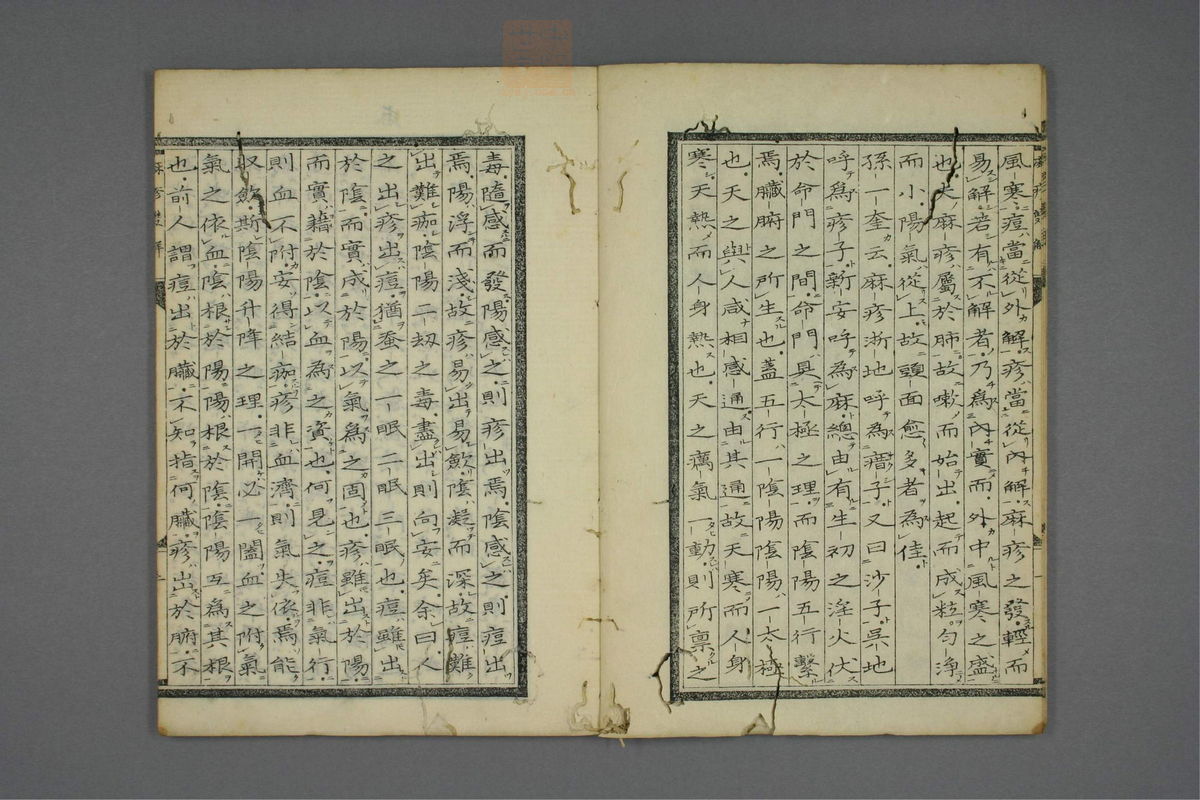 風寒痘當從外解疹當從內解麻疹之發輕而
易解若有不解者乃爲內實而外中風寒之盛
也夫麻疹屬於肺故嗽而始出起而成粒勻淨
而小陽氣從上故頭面愈多者為佳
孫一奎云麻疹浙地呼為瘄子又曰沙子吳地
呼為疹子新安呼為麻總由有生初之淫火伏
於命門之間命門具太極之理而陰陽五行繫
焉臟腑之所生也蓋五行一陰陽陰陽一太極
也天之與人咸相感通由其通故天寒而人身
寒天熱而人身熱也天之癘氣一動則所稟之
毒隨感而發陽感之則疹出焉陰感之則痘出
焉陽浮而淺故疹易出易斂陰凝而深故痘難
出難痂陰陽二劫之毒盡出則向安矣余曰人
之出疹出痘猶蚕之一眠二眠三眠也痘雖出
於陰而實成於陽以氣為之固也疹雖出於陽
而實藉於陰以血為之資也何見之痘非氣行
則血不附安得結痂疹非血濟則氣失依焉能
收斂斯陰陽升降之理一開必一闔血之附氣
氣之依血陰根於陽陽根於陰陰陽互為其根
也前人謂痘出於臟不知指何臟疹出於腑不